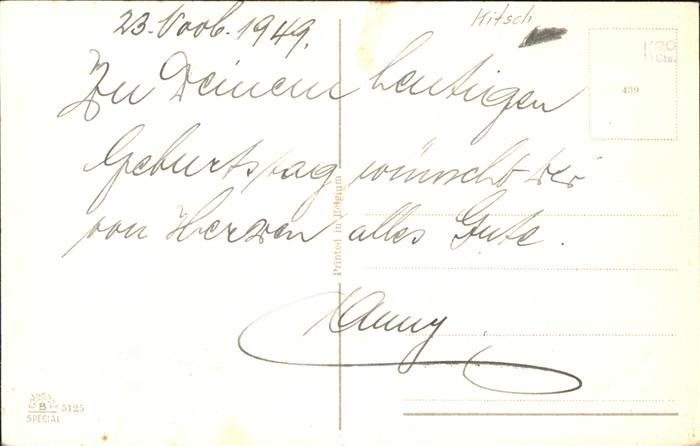 23. Novb. 1949.
Kitsch
Zu Deinem heutigen
Geburtstag wünscht Dir
von Herzen alles Gute.
Printed in Belgium
439
20
Cts.
B
5125
SPECIAL